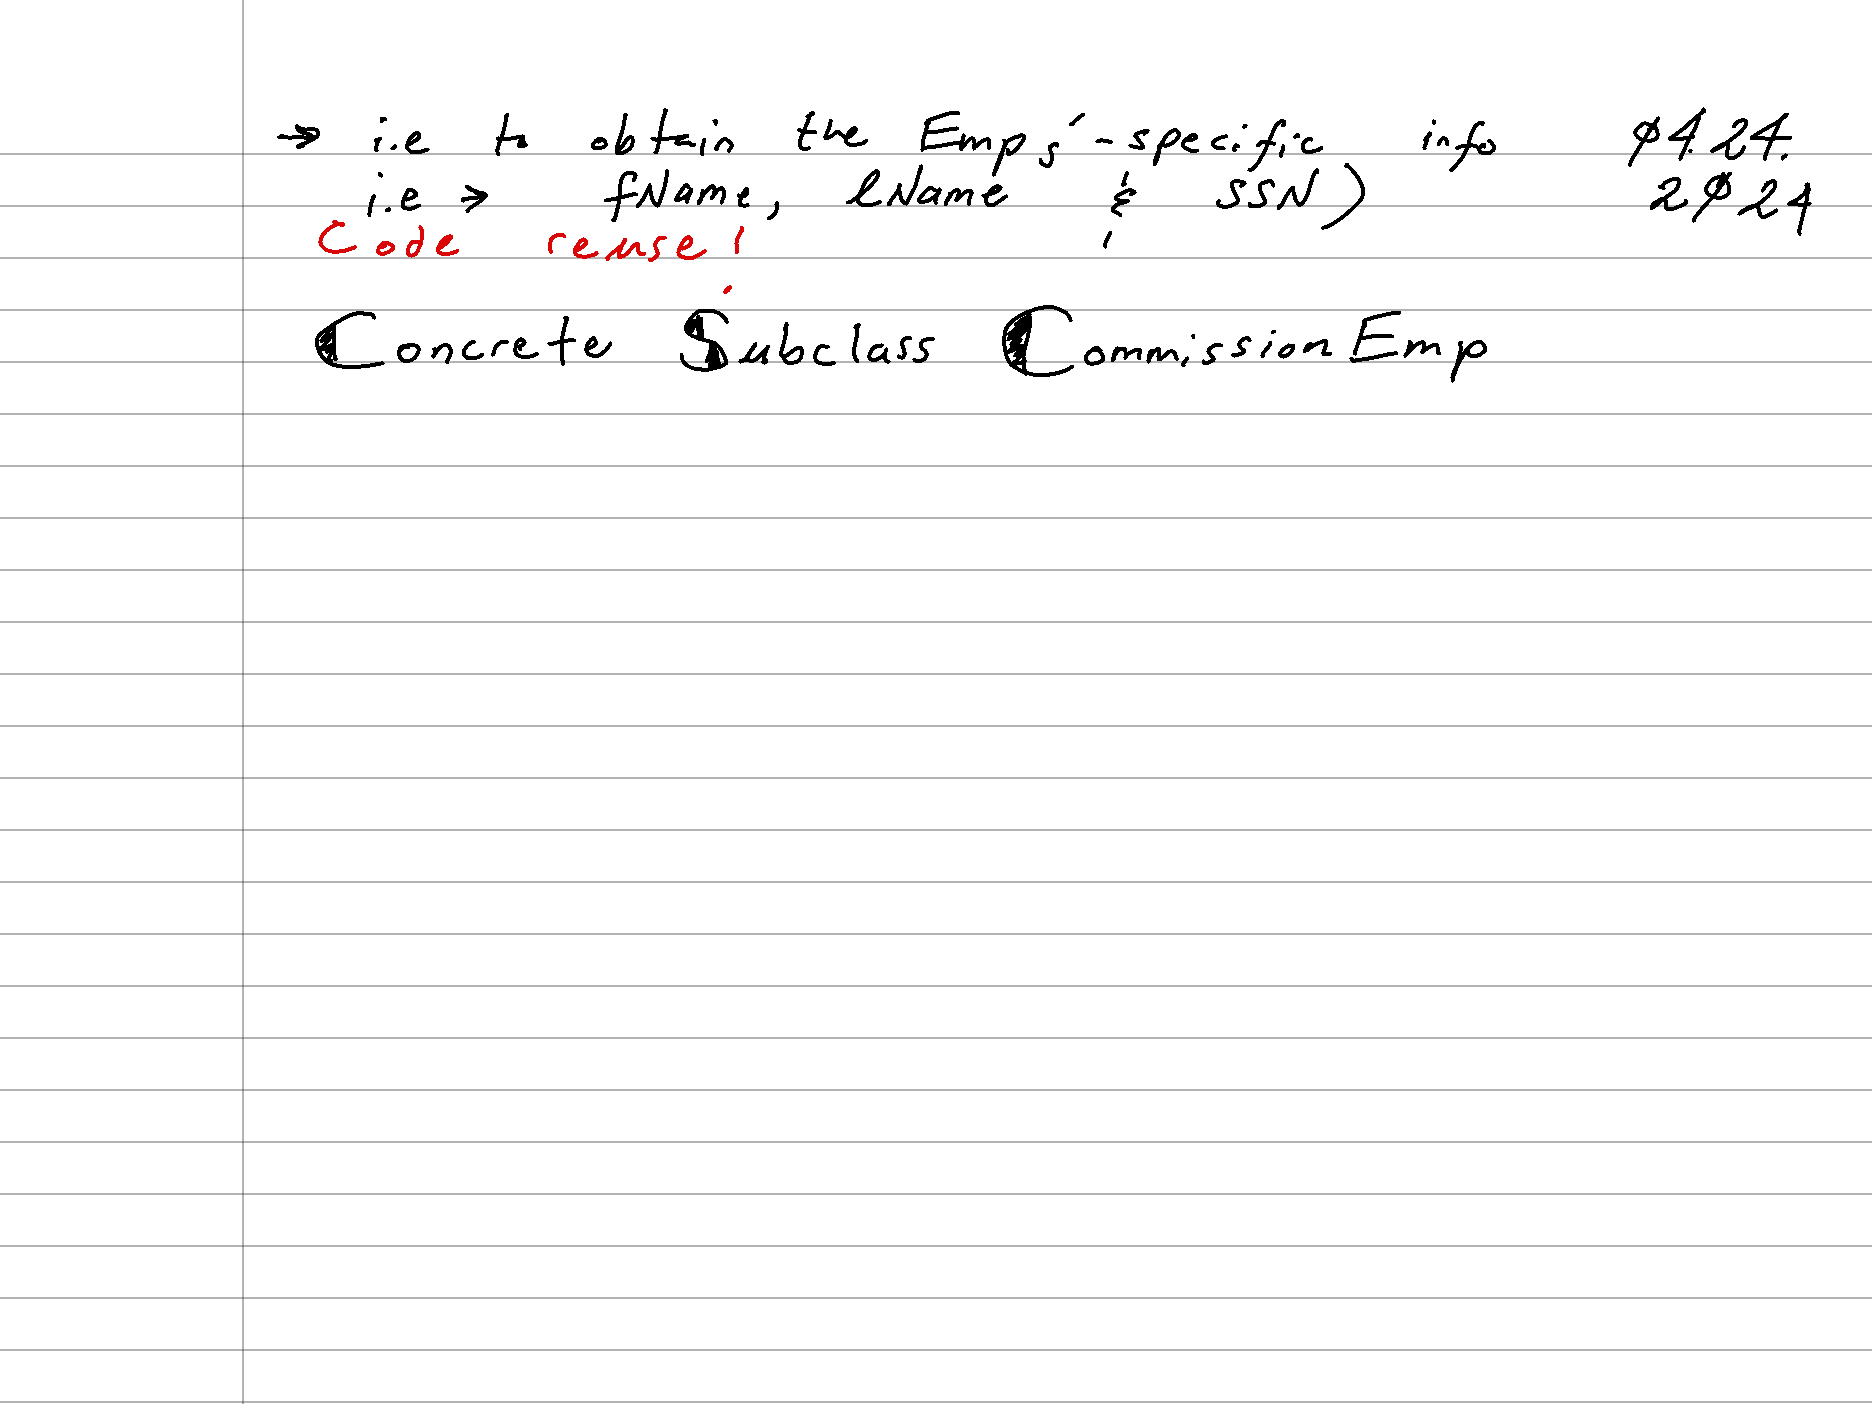 → i.e to obtain the Emps'-specific info 04.24.
i.e → fName, lName & SSN) 2024
Code reuse!
Concrete Subclass CommissionEmp